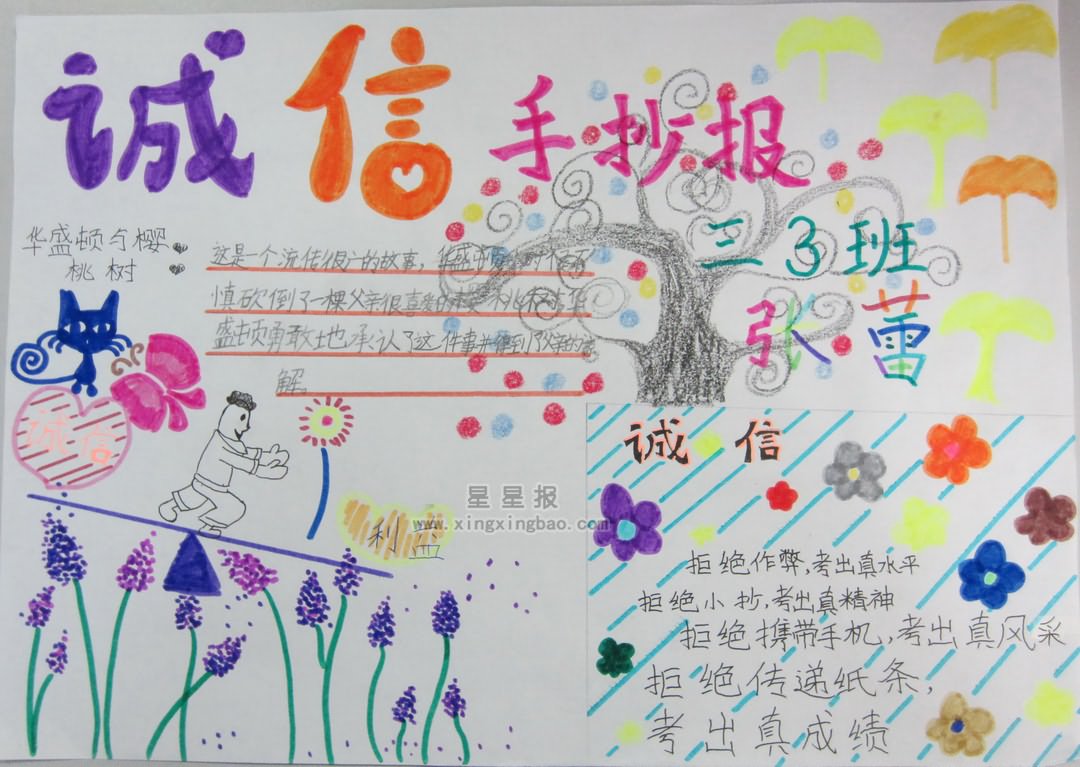 诚信手抄报
三3班
张蕾
华盛顿与樱
桃树
这是一个流传很广的故事,华盛顿
慎砍倒了一棵父亲很喜爱的樱桃树
盛顿勇敢地承认了这件事并得到了父亲的
解。
诚信
利益
星星报
www.xingxingbao.com
诚信
拒绝作弊,考出真水平
拒绝小抄,考出真精神
拒绝携带手机,考出真风采
拒绝传递纸条,
考出真成绩